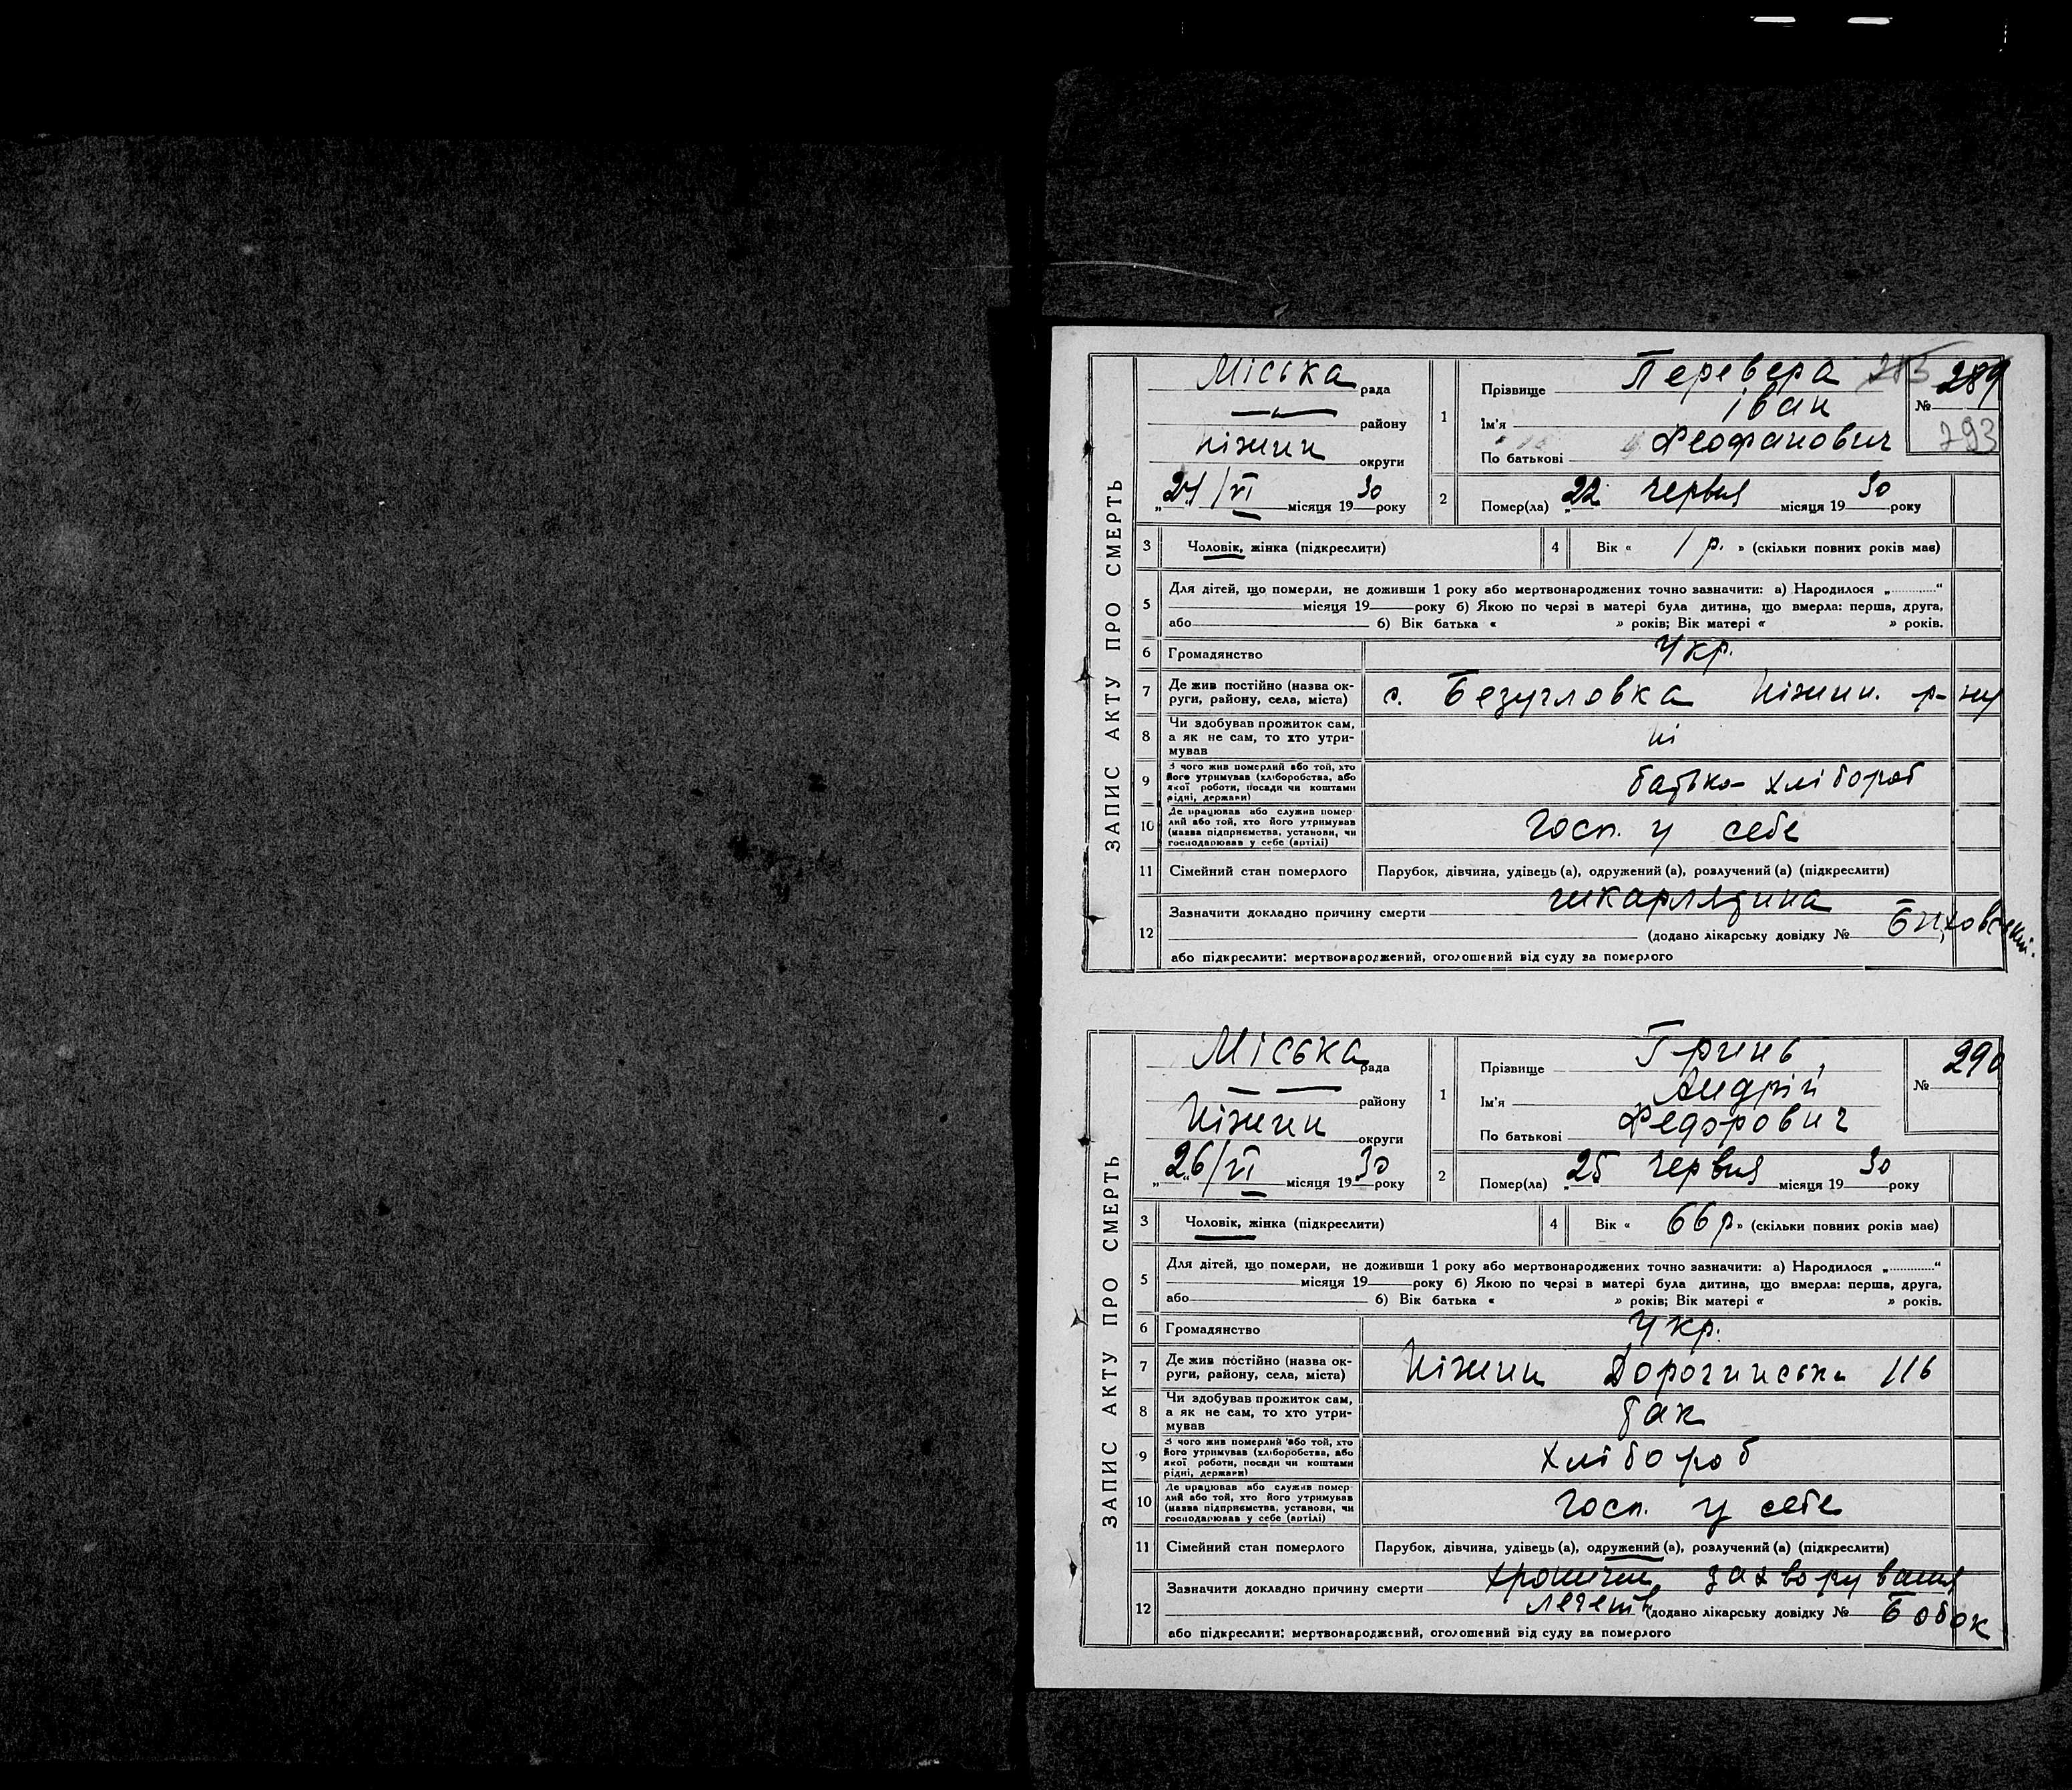 ЗАПИС АКТУ ПРО СМЕРТЬ
Міська рада
району
Ніжин округи
24/VI місяця 1930 року
1
Прізвище Перевера
Ім'я Іван
По батькові Феофанович
285
№ 289
293
2
Помер(ла) „22 червня місяця 1930 року
3 Чоловік, жінка (підкреслити)
4 Вік « 1 р. » (скільки повних років має)
5
Для дітей, що померли, не доживши 1 року або мертвонароджених точно зазначити: а) Народилося „............“
місяця 19 року б) Якою по черзі в матері була дитина, що вмерла: перша, друга,
або б) Вік батька « » років; Вік матері « » років.
6 Громадянство Укр.
7 Де жив постійно (назва округи, району, села, міста) с. Безугловка Ніжин. р-ну
8 Чи здобував прожиток сам,
а як не сам, то хто утри-
мував ні
9 З чого жив померлий або той, хто
його утримував (хліборобства, або
якої роботи, посади чи коштами
рідні, держави) батько-хлібороб
10 Де працював або служив помер-
лий або той, хто його утримував
(назва підприємства, установи, чи
господарював у себе (артілі) Госп. у себе
11 Сімейний стан померлого Парубок, дівчина, удівець (а), одружений (а), розлучений (а) (підкреслити)
12
Зазначити докладно причину смерти шкарлятина
(додано лікарську довідку № Биховський.
або підкреслити: мертвонароджений, оголошений від суду за померлого
ЗАПИС АКТУ ПРО СМЕРТЬ
Міська рада
району
Ніжин округи
„26/VI місяця 1930 року
1
Прізвище Гринь
Ім'я Андрій
По батькові Федорович
№ 290
2
Помер(ла) „25 червня місяця 1930 року
3 Чоловік, жінка (підкреслити)
4 Вік « 66 р » (скільки повних років має)
5
Для дітей, що померли, не доживши 1 року або мертвонароджених точно зазначити: а) Народилося „............“
місяця 19 року б) Якою по черзі в матері була дитина, що вмерла: перша, друга,
або б) Вік батька « » років; Вік матері « » років.
6 Громадянство Укр.
7 Де жив постійно (назва ок-
руги, району, села, міста) Ніжин Дорогинська 116
8 Чи здобував прожиток сам,
а як не сам, то хто утри-
мував так
9 З чого жив померлий або той, хто
його утримував (хліборобства, або
якої роботи, посади чи коштами
рідні, держави) хлібороб
10 Де працював або служив помер-
лий або той, хто його утримував
(назва підприємства, установи, чи
господарював у себе (артілі) Госп. у себе
11 Сімейний стан померлого Парубок, дівчина, удівець (а), одружений (а), розлучений (а) (підкреслити)
12
Зазначити докладно причину смерти захворування
(додано лікарську довідку № Бобок
або підкреслити: мертвонароджений, оголошений від суду за померлого